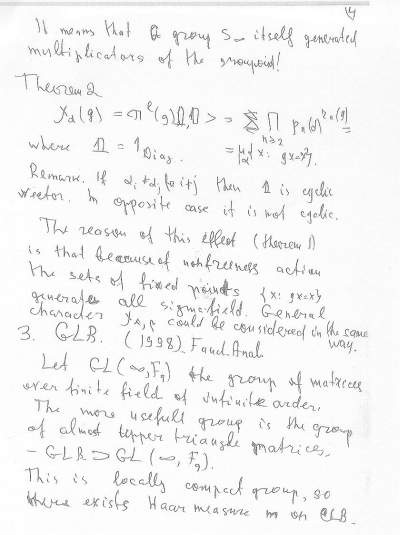 4
It means that a group S∞ itself generated
multiplicators of the groupoid!
Theorem 2
χ_α(g) = <π^ℓ(g)𝟙, 𝟙> = ∏ p_n(α)^{r_n(g)} =
n≥2
where 𝟙 = 1_Diag. = μ_α{x: gx=x}.
Remark. If α_i ≠ α_j (i≠j) then 𝟙 is cyclic
vector. In opposite case it is not cyclic.
The reason of this effect (theorem 1)
is that because of nonfreeness action
the sets of fixed points {x: gx=x}
generates all sigma-field. General
character χ_α,β could be considered in the same
way.
3. GLB. (1998). Funct. Anal.
Let GL(∞, F_q) the group of matrices
over finite field of infinite order.
The more usefull group is the group
of almost upper triangle matrices.
- GLB ⊃ GL(∞, F_q).
This is locally compact group, so
there exists Haar measure m on GLB.